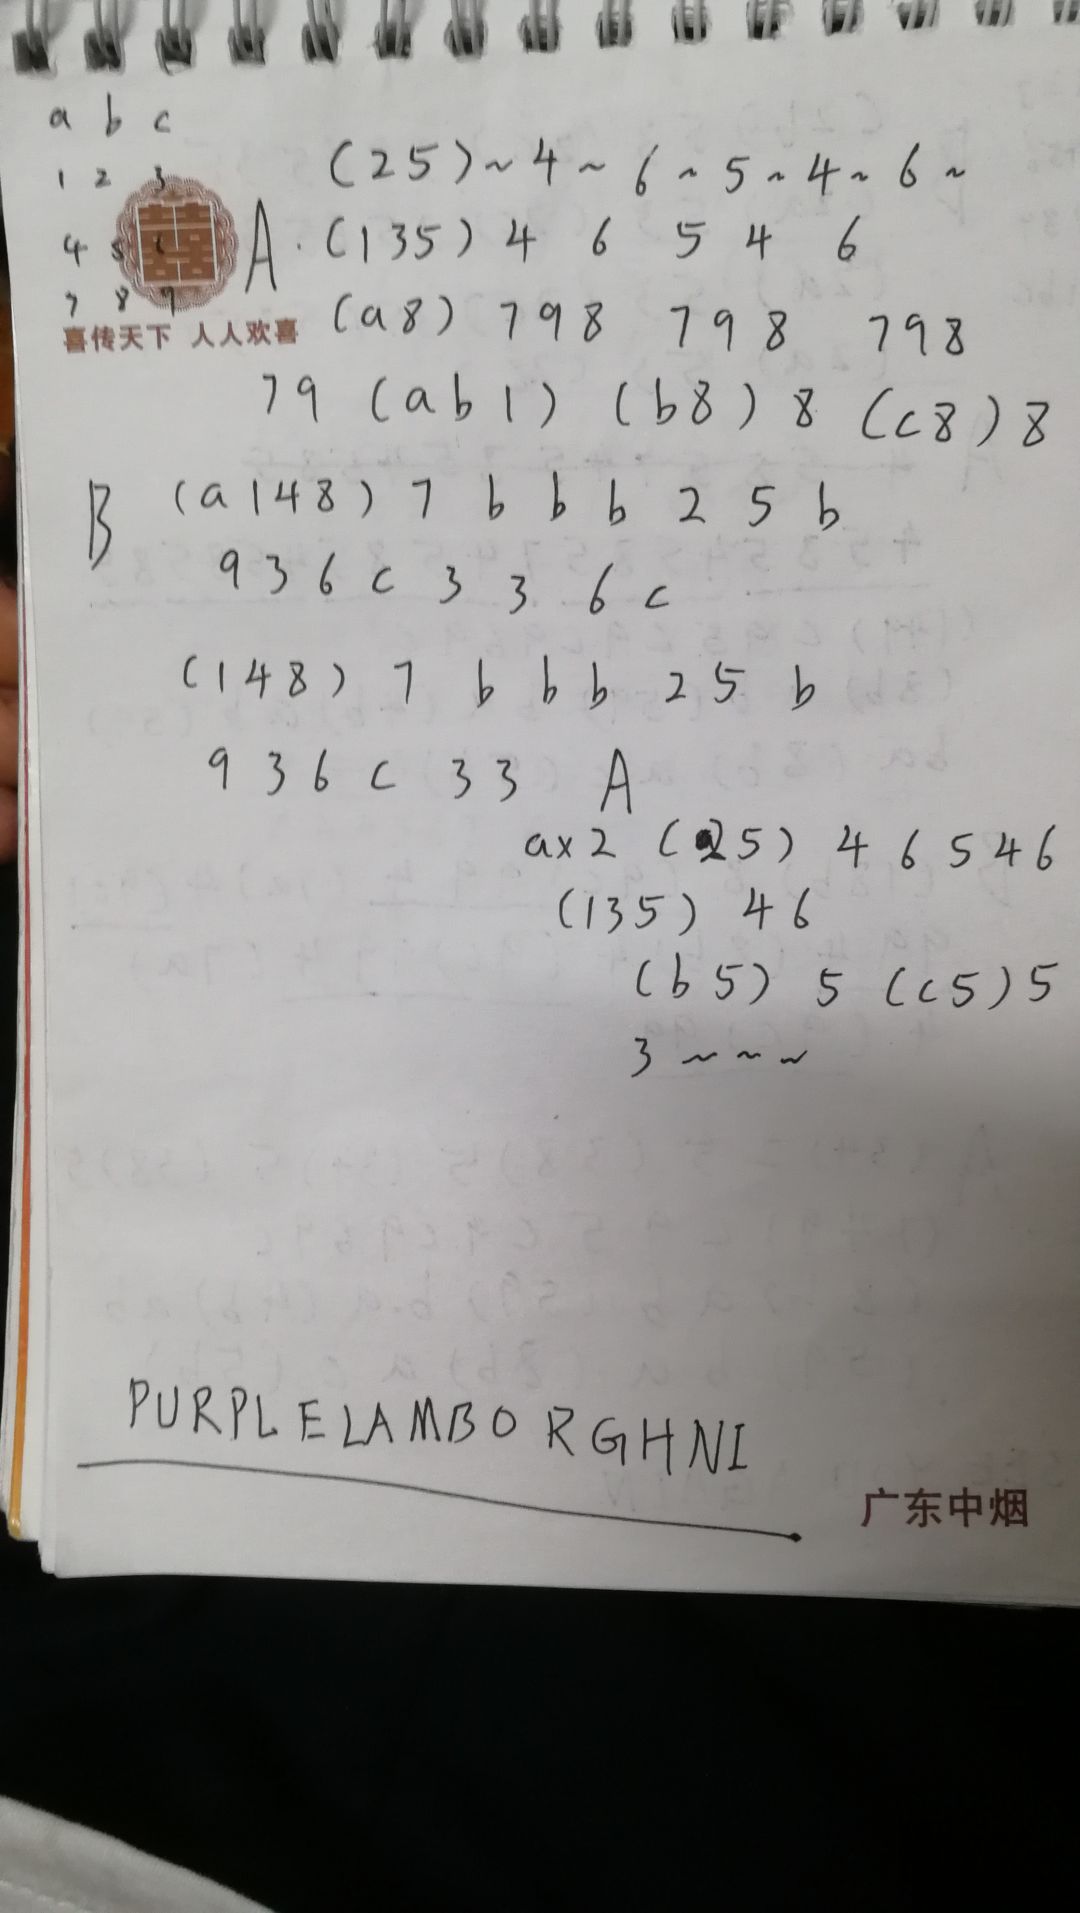 a b c
1 2 3
4 5 6
7 8 9
喜传天下 人人欢喜
A. (25)~4~6~5~4~6~
(135) 4 6 5 4 6
(a8) 798 798 798
79 (ab1) (b8) 8 (c8) 8
B (a148) 7 b b b 2 5 b
9 3 6 c 3 3 6 c
(148) 7 b b b 2 5 b
9 3 6 c 3 3 A
ax2 (25) 4 6 5 4 6
(135) 4 6
(b5) 5 (c5) 5
3 ~ ~ ~
PURPLELAMBORGHNI
广东中烟